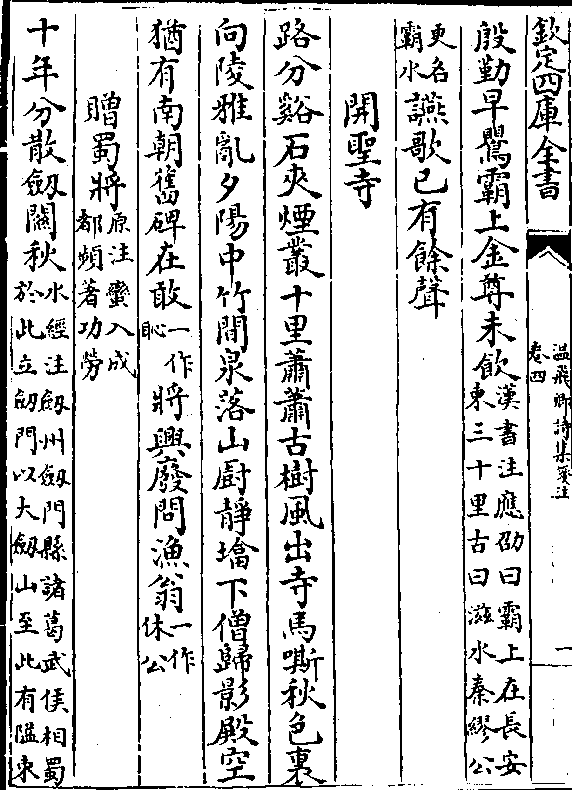 欽定四庫全書
温飛卿詩集箋注
卷四
一
殷勤早鸎霸上金尊未飲漢書注應劭曰霸上在長安
東三十里古曰滋水秦繆公
更名
霸水讌歌已有餘聲
開聖寺
路分谿石夾煙叢十里蕭蕭古樹風出寺馬嘶秋色裏
向陵雅亂夕陽中竹間泉落山廚靜墖下僧歸影殿空
猶有南朝舊碑在敢一作恥將興廢問漁翁一作休公
贈蜀將原注蠻入成
都頻著功勞
十年分散劔關秋水經注劔州劔門縣諸葛武侯相蜀
於此立劔門以大劔山至此有隘束